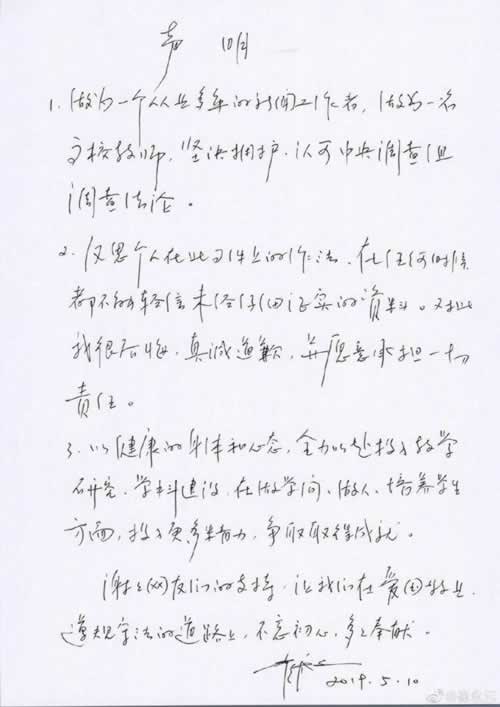 声明
1. 做为一个从业多年的新闻工作者，做为一名
高校教师，坚决拥护、认可中央调查组
调查结论。
2. 反思个人在此事件上的作法，在任何时候
都不能轻信未经仔细证实的资料。对此
我很后悔，真诚道歉，并愿意承担一切
责任。
3. 以健康的身体和心态，全力以赴投入教学
研究、学科建设，在做学问、做人、培养学生
方面，投入更多精力，争取取得成就。
谢谢网友们的支持，让我们在爱国敬业、
遵规守法的道路上，不忘初心，多多奉献。
2019.5.10